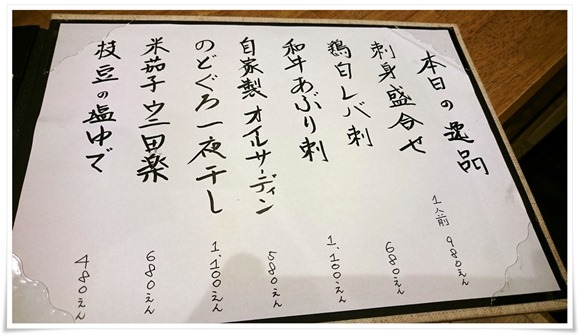 本日の逸品
刺身盛合せ 1人前 980えん
鶏白レバ刺 680えん
和牛あぶり刺 1,100えん
自家製オイルサーディン 580えん
のどぐろ一夜干し 1,100えん
米茄子ウニ田楽 680えん
枝豆の塩ゆで 480えん